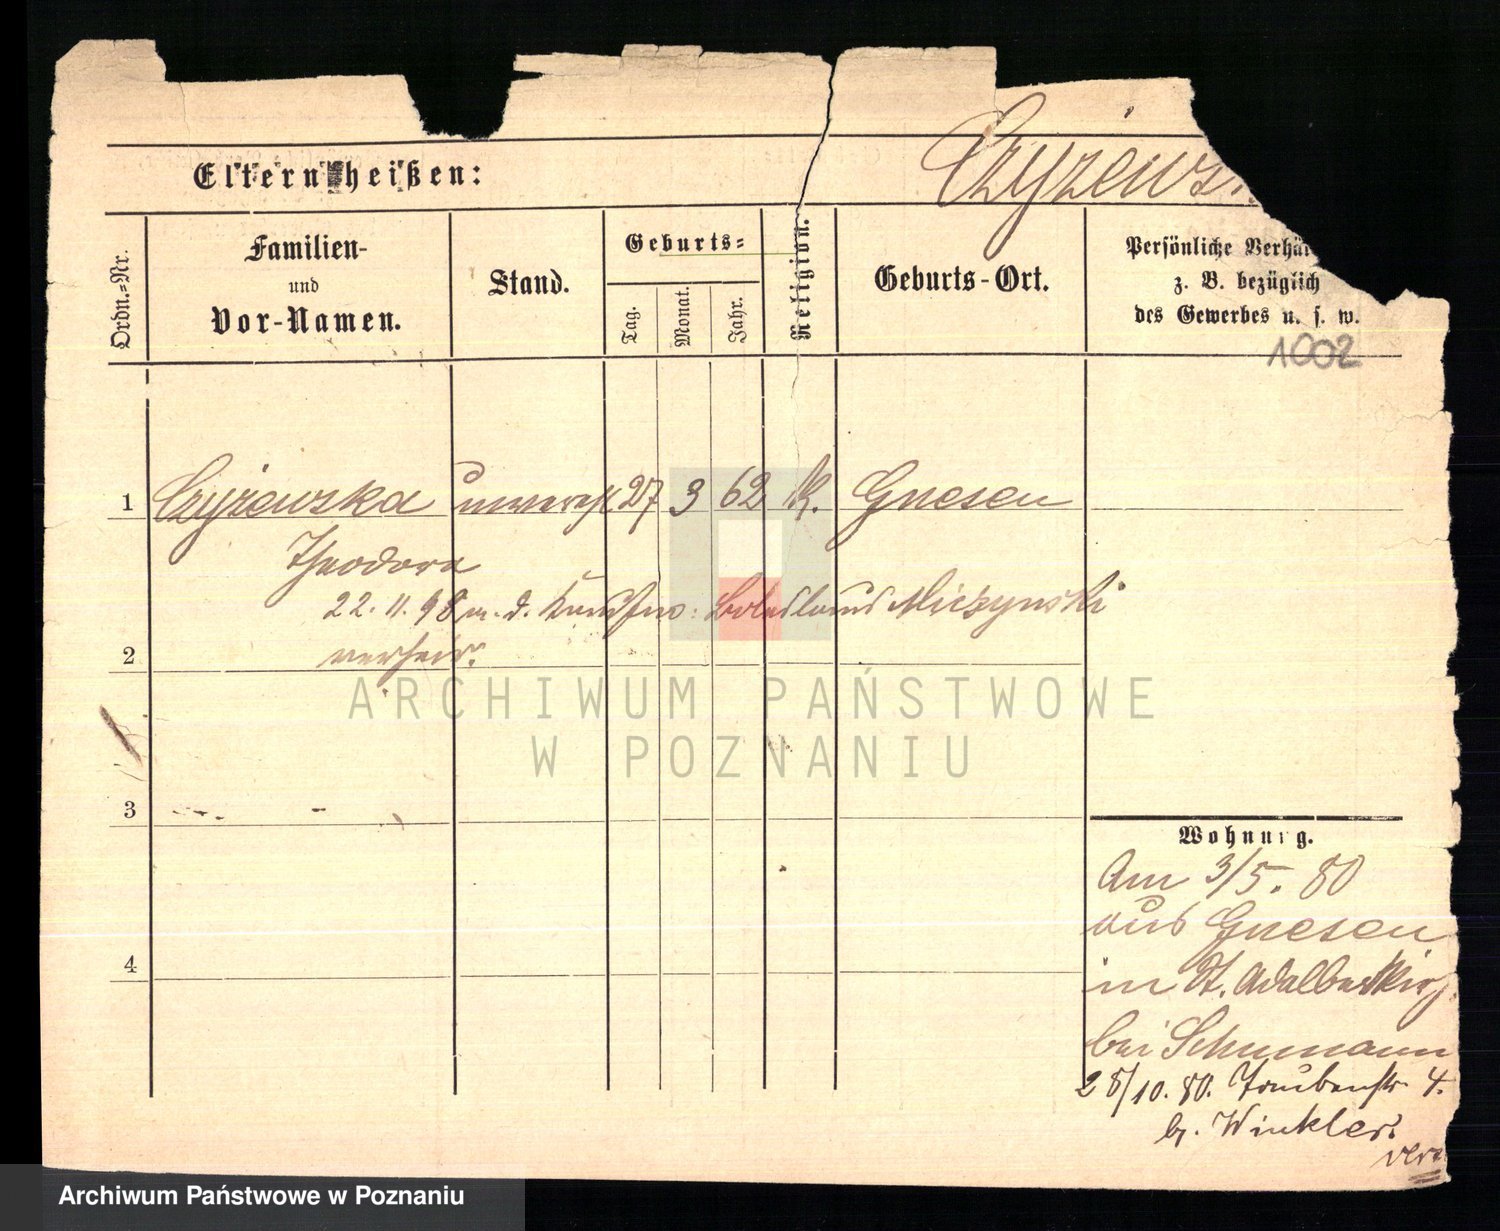 Czyżews
Eltern heißen:
Ordn.-Nr.
Familien-
und
Vor-Namen.
Stand.
Geburts-
Tag.
Monat.
Jahr.
Religion.
Geburts-Ort.
Persönliche Verhä
z. B. bezüglich
des Gewerbes u. s. w.
1002
1 Czyżewska unvereh 27 3 62 K. Gnesen
Theodora
22. 11. 98 m. d. Kaufm: Boleslaus Miczynski
2 verheir.
3
4
Wohnung.
Am 3/5. 80
aus Gnesen
in St. Adalbertkirch
bei Schumann
28/10. 80. Taubenstr 4.
b. Winkler
ARCHIWUM PAŃSTWOWE
W POZNANIU
Archiwum Państwowe w Poznaniu